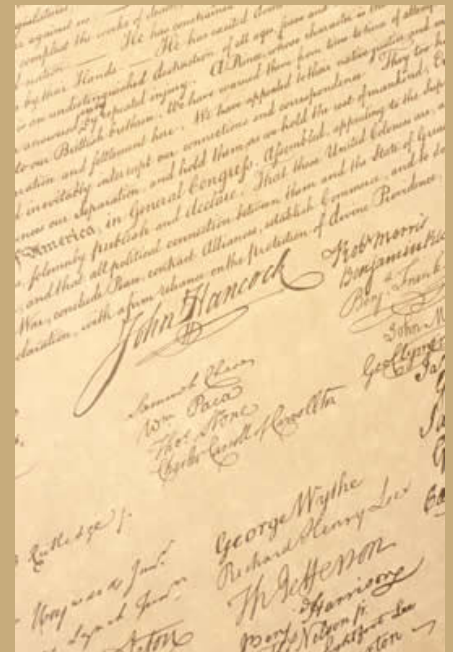 against us
complete the works of death
nation — He has constrained
by their Hands — He has excited dome
is an undistinguished destruction of all ages, sexes and
answered by repeated injury. A Prince, whose character is thus
to our Brittish brethren. We have warned them from time to time of attempts
migration and settlement here. We have appealed to their native justice and ma
d inevitably interrupt our connections and correspondence. They too ha
ounces our Separation, and hold them, as we hold the rest of mankind, En
of America, in General Congress, Assembled, appealing to the Sup
solemnly publish and declare, That these United Colonies are, a
and that all political connection between them and the State of Grea
War, conclude Peace, contract Alliances, establish Commerce, and to do
claration, with a firm reliance on the Protection of divine Providence,
John Hancock
Robt Morris
Benjamin Ru
Benja Frank
John M
Geo Clymer
Samuel Chase
Wm Paca
Thos Stone
Charles Carroll of Carrollton
Rutledge
Heyward Junr
Lynch Junr
George Wythe
Richard Henry Lee
Th Jefferson
Benja Harrison
Thos Nelson jr.
Lightfoot Lee